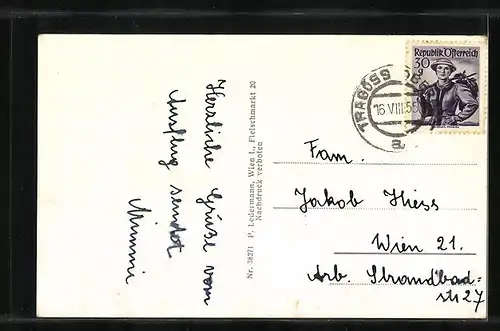 Herzliche Grüße vom
Ausflug sendet
Mimmi
Nr. 38271 P. Ledermann, Wien I., Fleischmarkt 20
Nachdruck verboten
Republik Österreich
30
TRAGÖSS
16.VIII.5
a
Fam.
Jakob Hiess
Wien 21.
Arb. Strandbad-
str 27